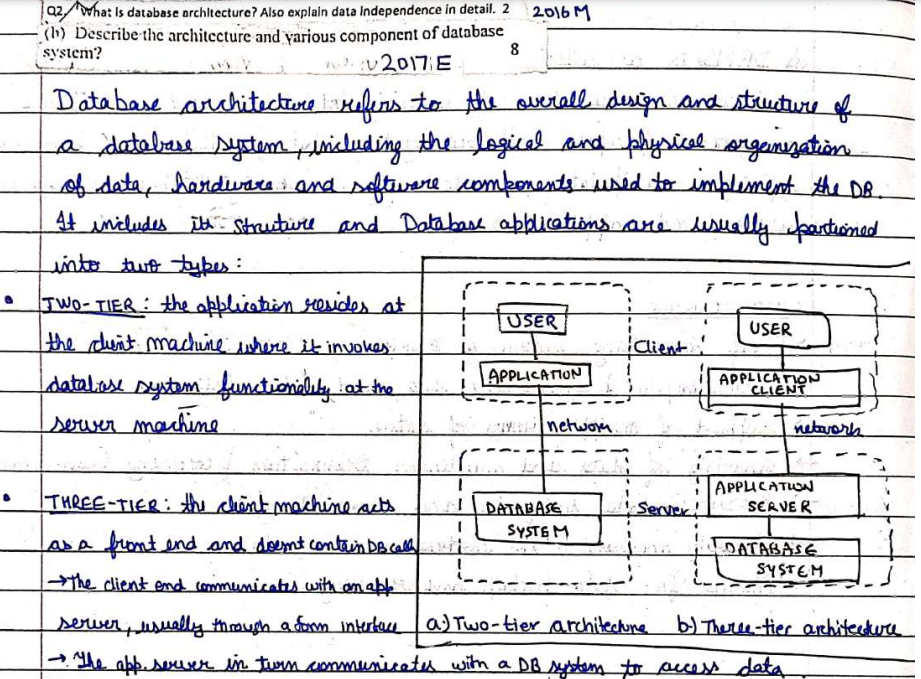 Q2. What is database architecture? Also explain data Independence in detail. 2 2016 M
(b) Describe the architecture and various component of database
system? 8
2017 E
Database architecture refers to the overall design and structure of
a database system, including the logical and physical organization
of data, hardware and software components used to implement the DB.
It includes its structure and Database applications are usually partioned
into two types :
• TWO-TIER : the application resides at
the client machine where it invokes
database system functionality at the
server machine
• THREE-TIER : the client machine acts
as a front end and doesnt contain DB call
→ The client end communicates with an app
server, usually through a form interface
→ The app. server in turn communicates with a DB system to access data
USER
APPLICATION
network
DATABASE
SYSTEM
a.) Two-tier architecture
Client
Server
USER
APPLICATION
CLIENT
network
APPLICATION
SERVER
DATABASE
SYSTEM
b.) Theree-tier architecture